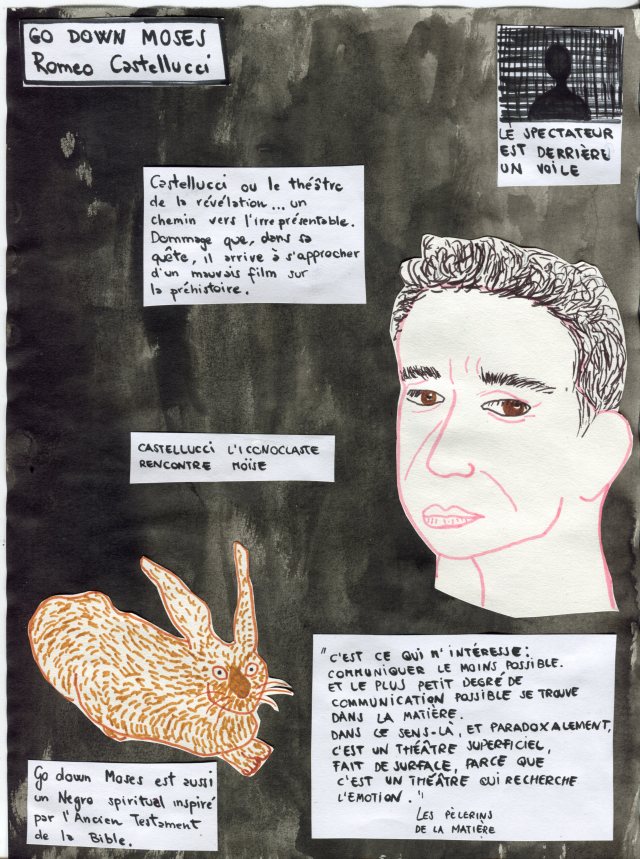 GO DOWN MOSES
Romeo Castellucci
LE SPECTATEUR
EST DERRIÈRE
UN VOILE
Castellucci ou le théâtre
de la révélation... un
chemin vers l'irreprésentable.
Dommage que, dans sa
quête, il arrive à s'approcher
d'un mauvais film sur
la préhistoire.
CASTELLUCCI L'ICONOCLASTE
RENCONTRE MOÏSE
"C'EST CE QUI M'INTÉRESSE:
COMMUNIQUER LE MOINS POSSIBLE.
ET LE PLUS PETIT DEGRÉ DE
COMMUNICATION POSSIBLE SE TROUVE
DANS LA MATIÈRE.
DANS CE SENS-LÀ, ET PARADOXALEMENT,
C'EST UN THÉÂTRE SUPERFICIEL,
FAIT DE SURFACE, PARCE QUE
C'EST UN THÉÂTRE QUI RECHERCHE
L'EMOTION."
LES PÈLERINS
DE LA MATIÈRE
Go down Moses est aussi
un Negro spiritual inspiré
par l'Ancien Testament
de la Bible.